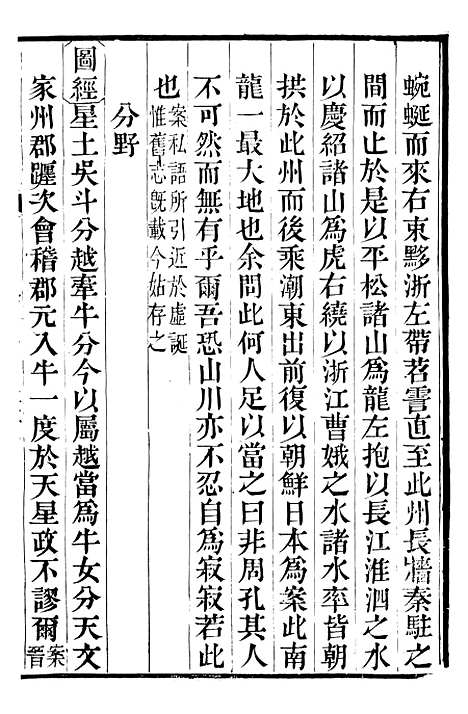 蜿蜒而來右束黟浙左帶苕霅直至此州長牆秦駐之
間而止於是以平松諸山爲龍左抱以長江淮泗之水
以慶紹諸山爲虎右繞以浙江曹娥之水諸水率皆朝
拱於此州而後乘潮東出前復以朝鮮日本爲案此南
龍一最大地也余問此何人足以當之曰非周孔其人
不可然而無有乎爾吾恐山川亦不忍自爲寂寂若此
也案私語所引近於虛誕
惟舊志旣載今姑存之
分野
圖經星土吳斗分越牽牛分今以屬越當爲牛女分天文
家州郡躔次會稽郡元入牛一度於天星政不謬爾案
晉